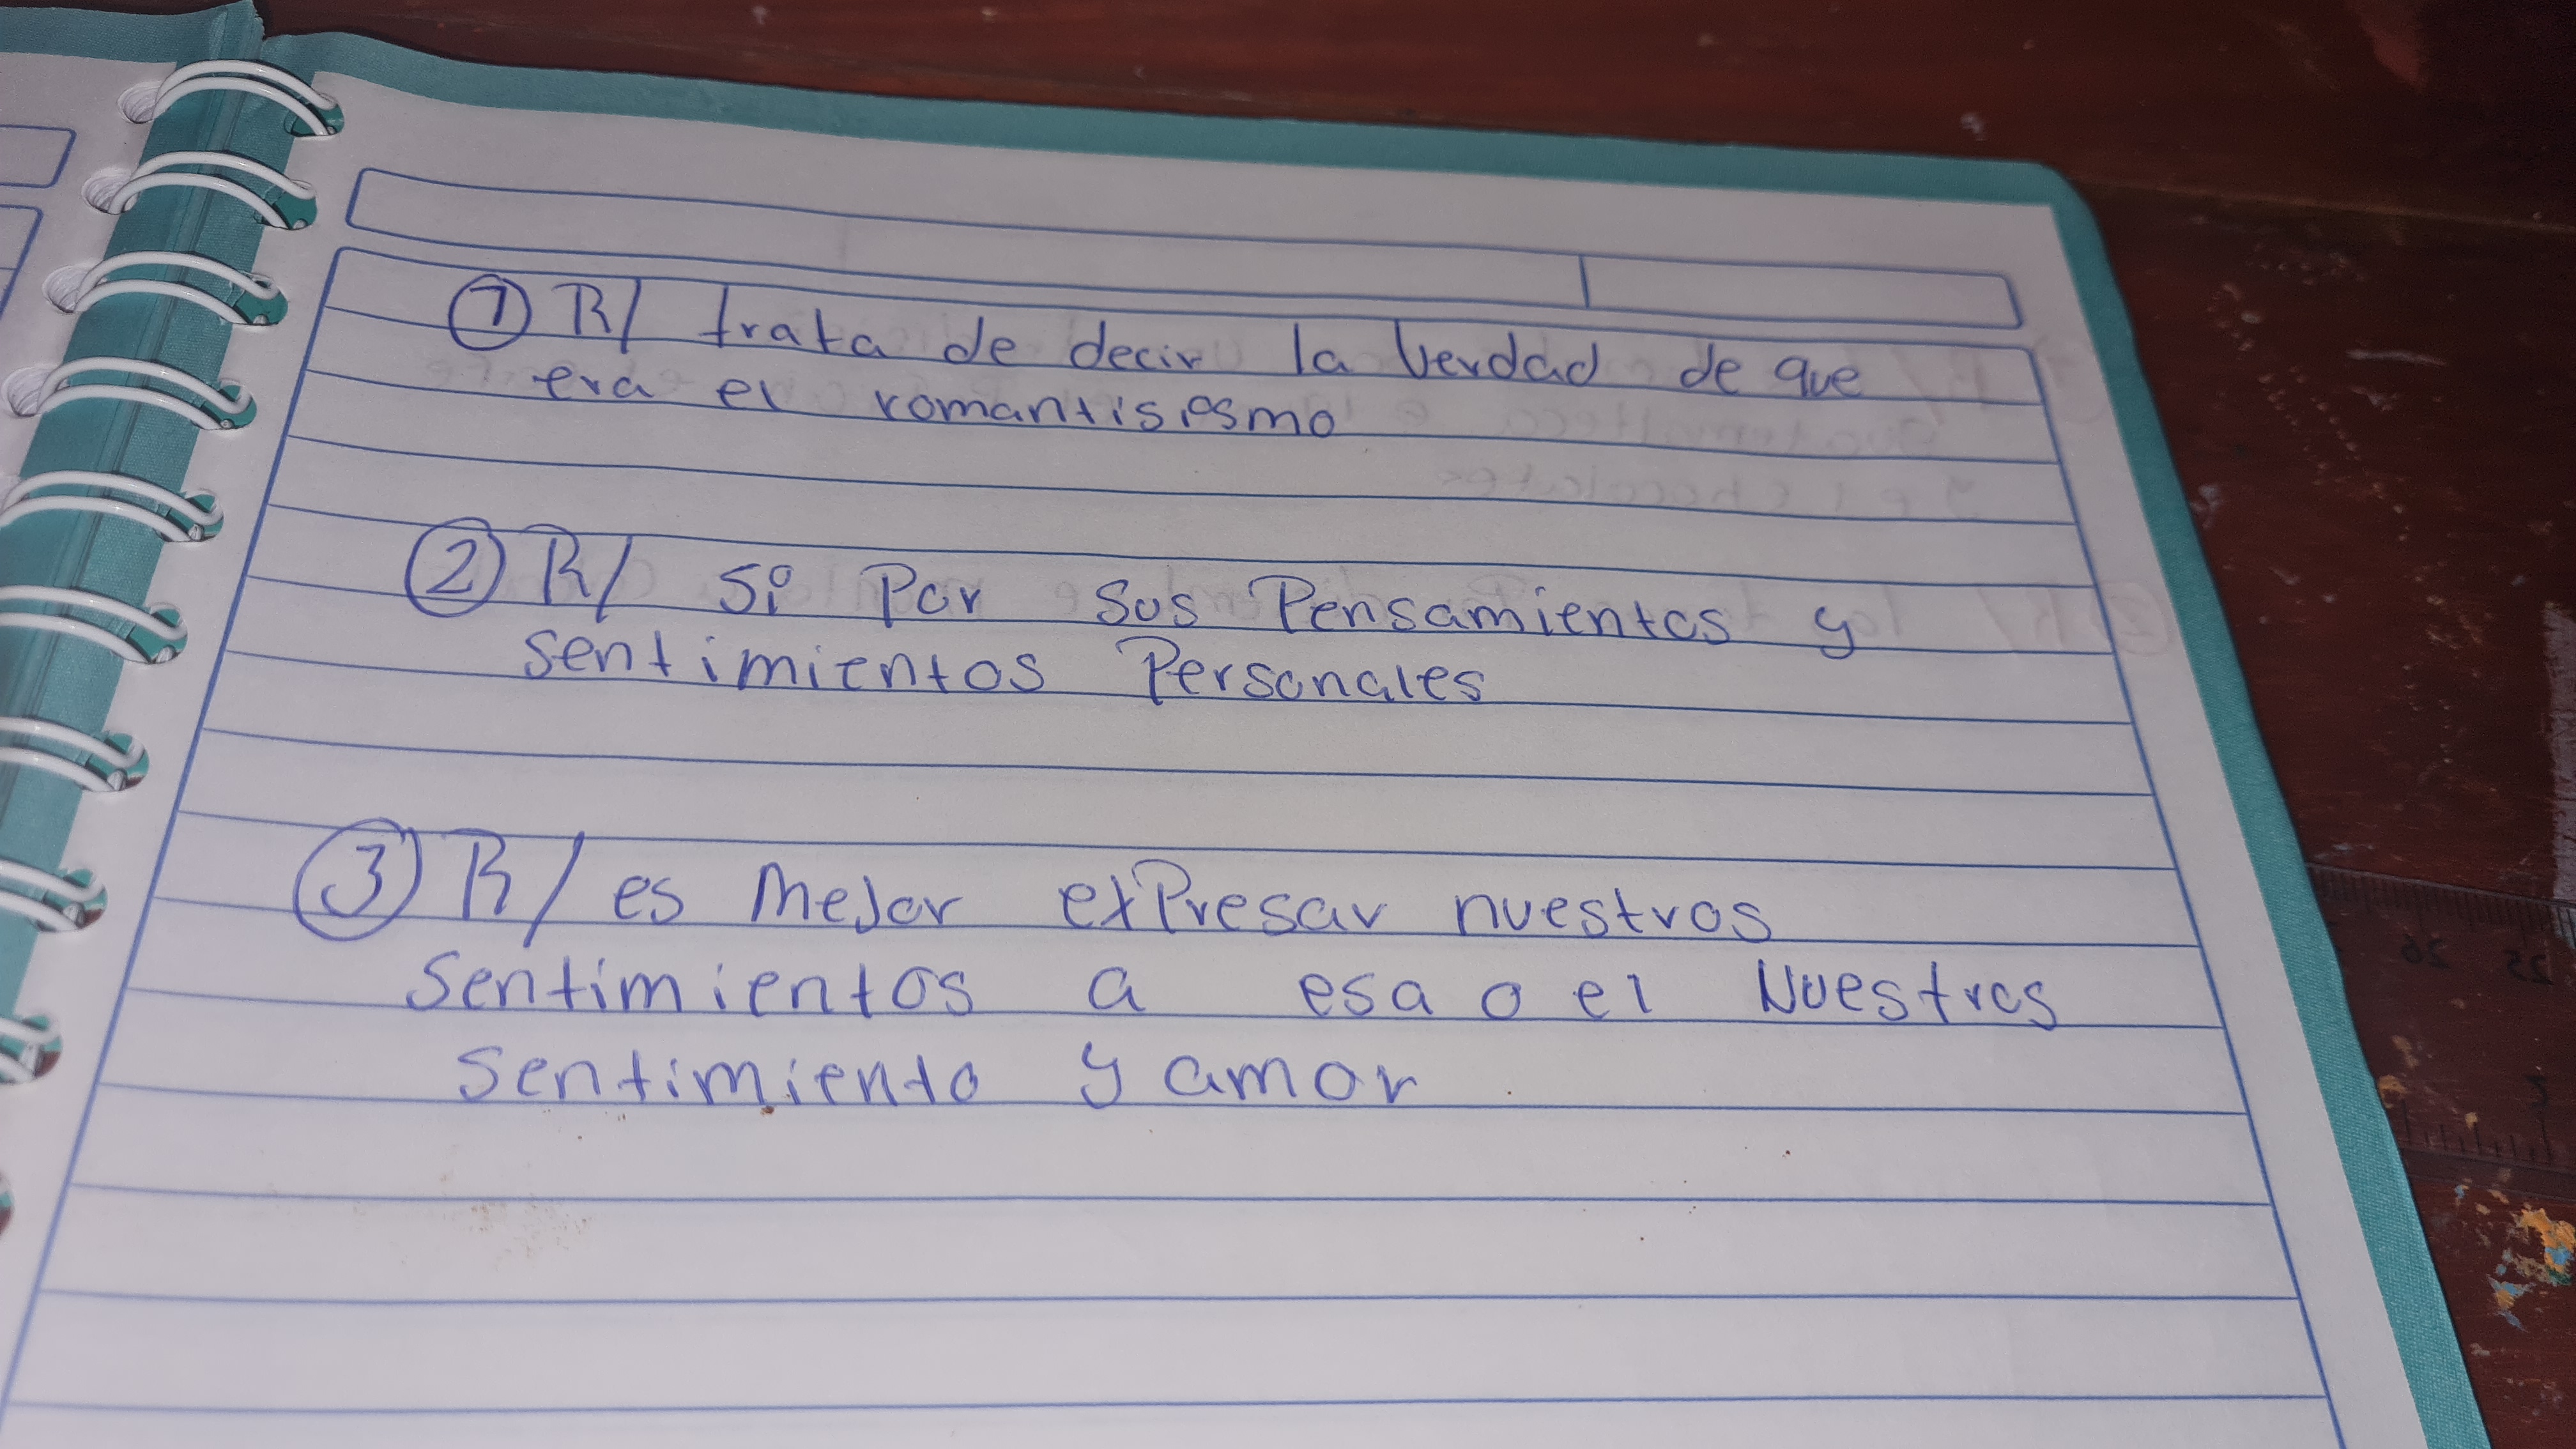 ① R/ trata de decir la verdad de que
era el romantisiesmo
② R/ si Por sus Pensamientos y
sentimientos Personales
③ R/ es Mejor exPresar nuestros
Sentimientos a esa o el Nuestros
sentimiento y amor
26 25